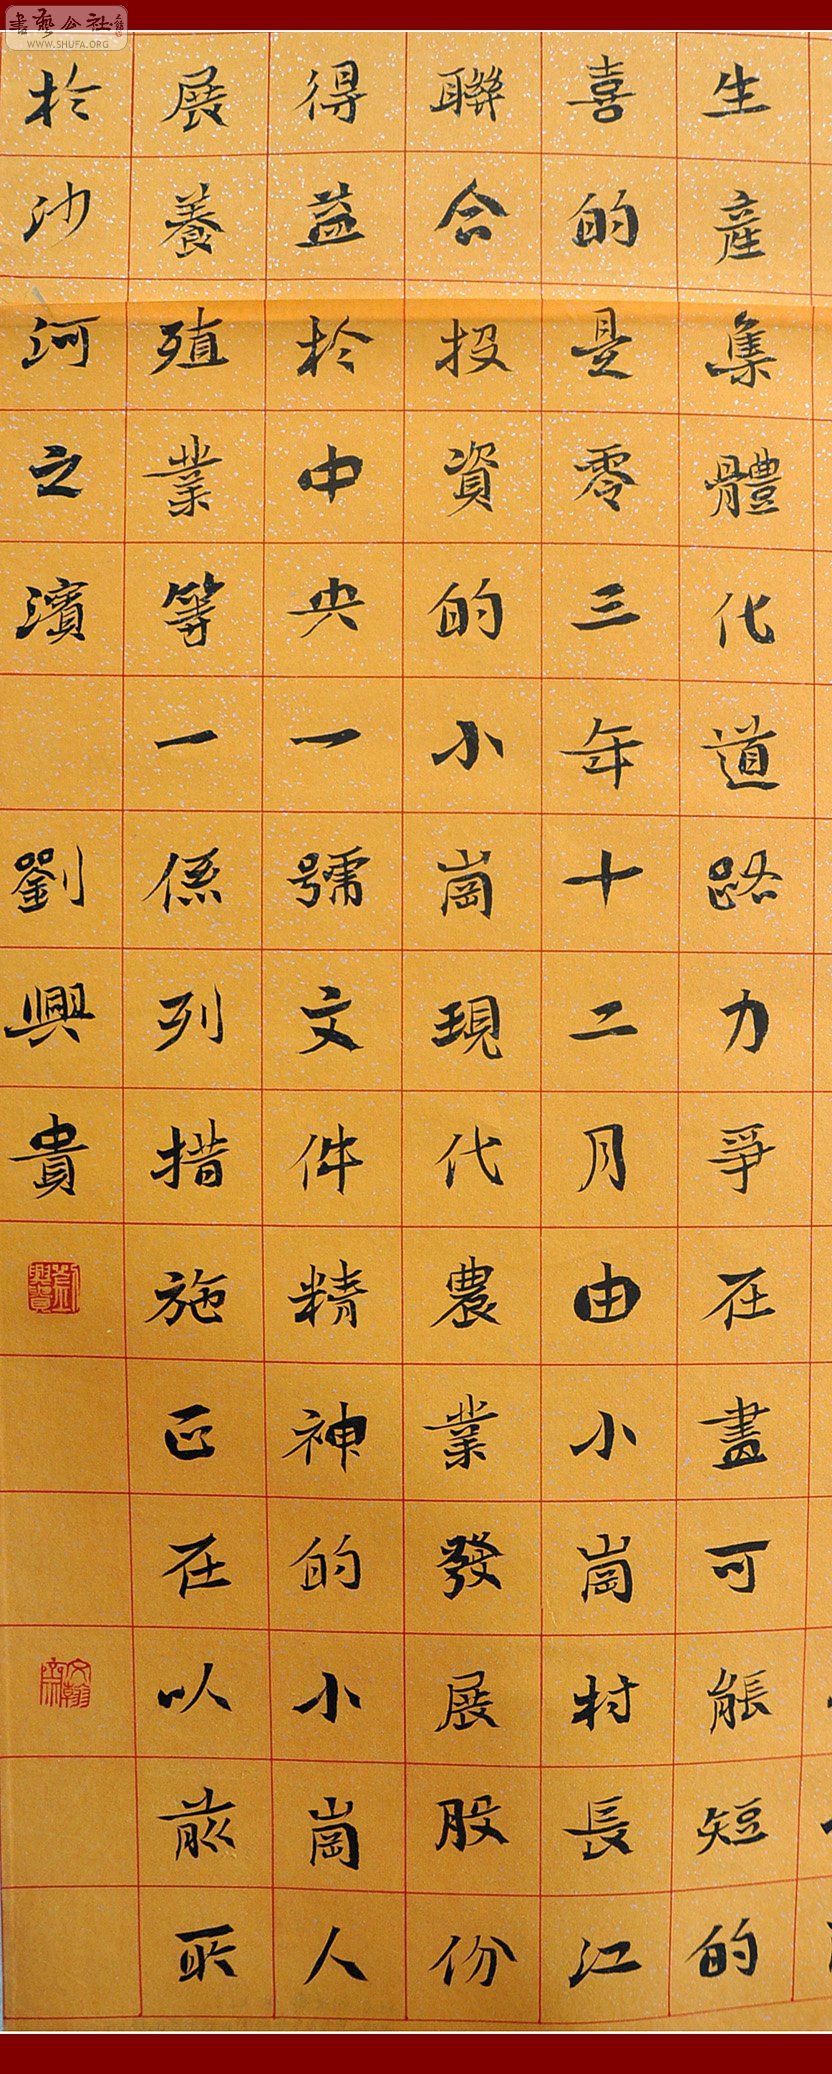 生產集體化道路力爭在盡可能短的
喜的是零三年十二月由小崗村長江
聯合投資的小崗現代農業發展股份
得益於中央一號文件精神的小崗人
展養殖業等一係列措施正在以前所
於沙河之濱 劉興貴
書藝公社
WWW.SHUFA.ORG